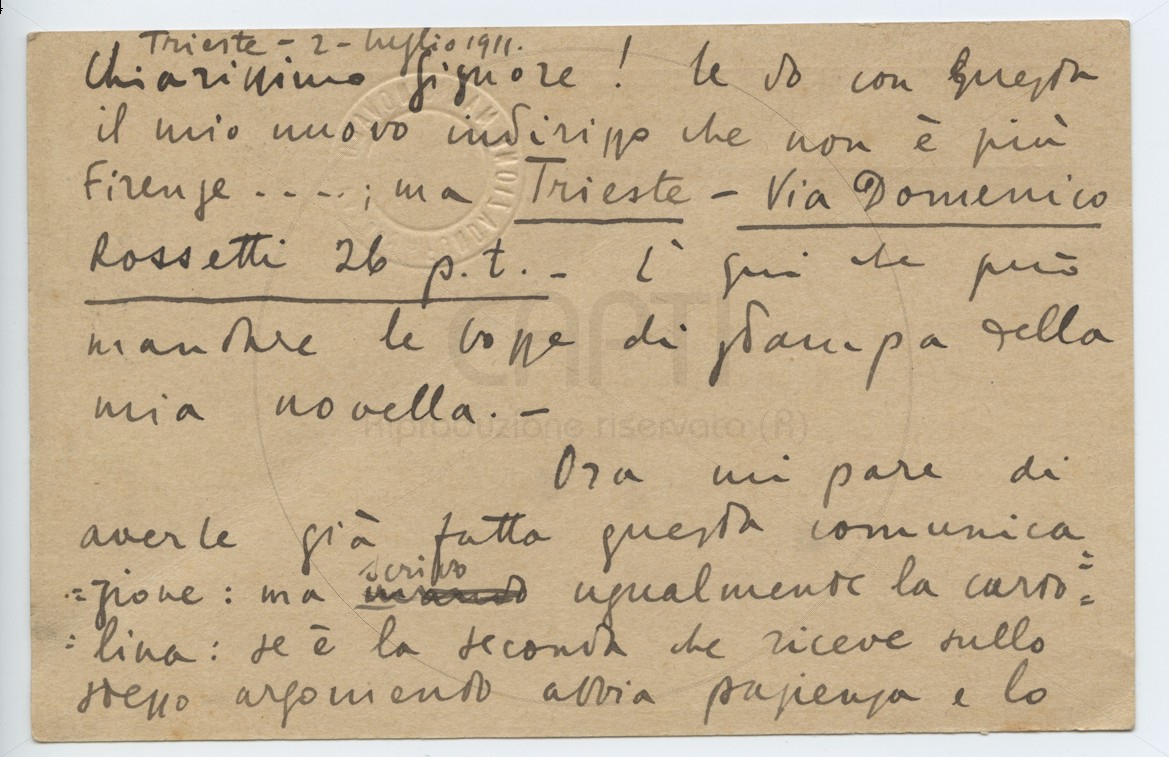 Trieste - 2 - luglio 1911.
Chiarissimo Signore! le do con questa
il mio nuovo indirizzo che non è più
Firenze - - - -; ma Trieste - Via Domenico
Rossetti 26 p.t. - È qui che può
mandare le bozze di stampa della
mia novella. -
Ora mi pare di
averle già fatta questa comunica
=zione: ma scrivo ugualmente la carto=
=lina: se è la seconda che riceve sullo
stesso argomento abbia pazienza e lo
CARTI
riproduzione riservata (R)